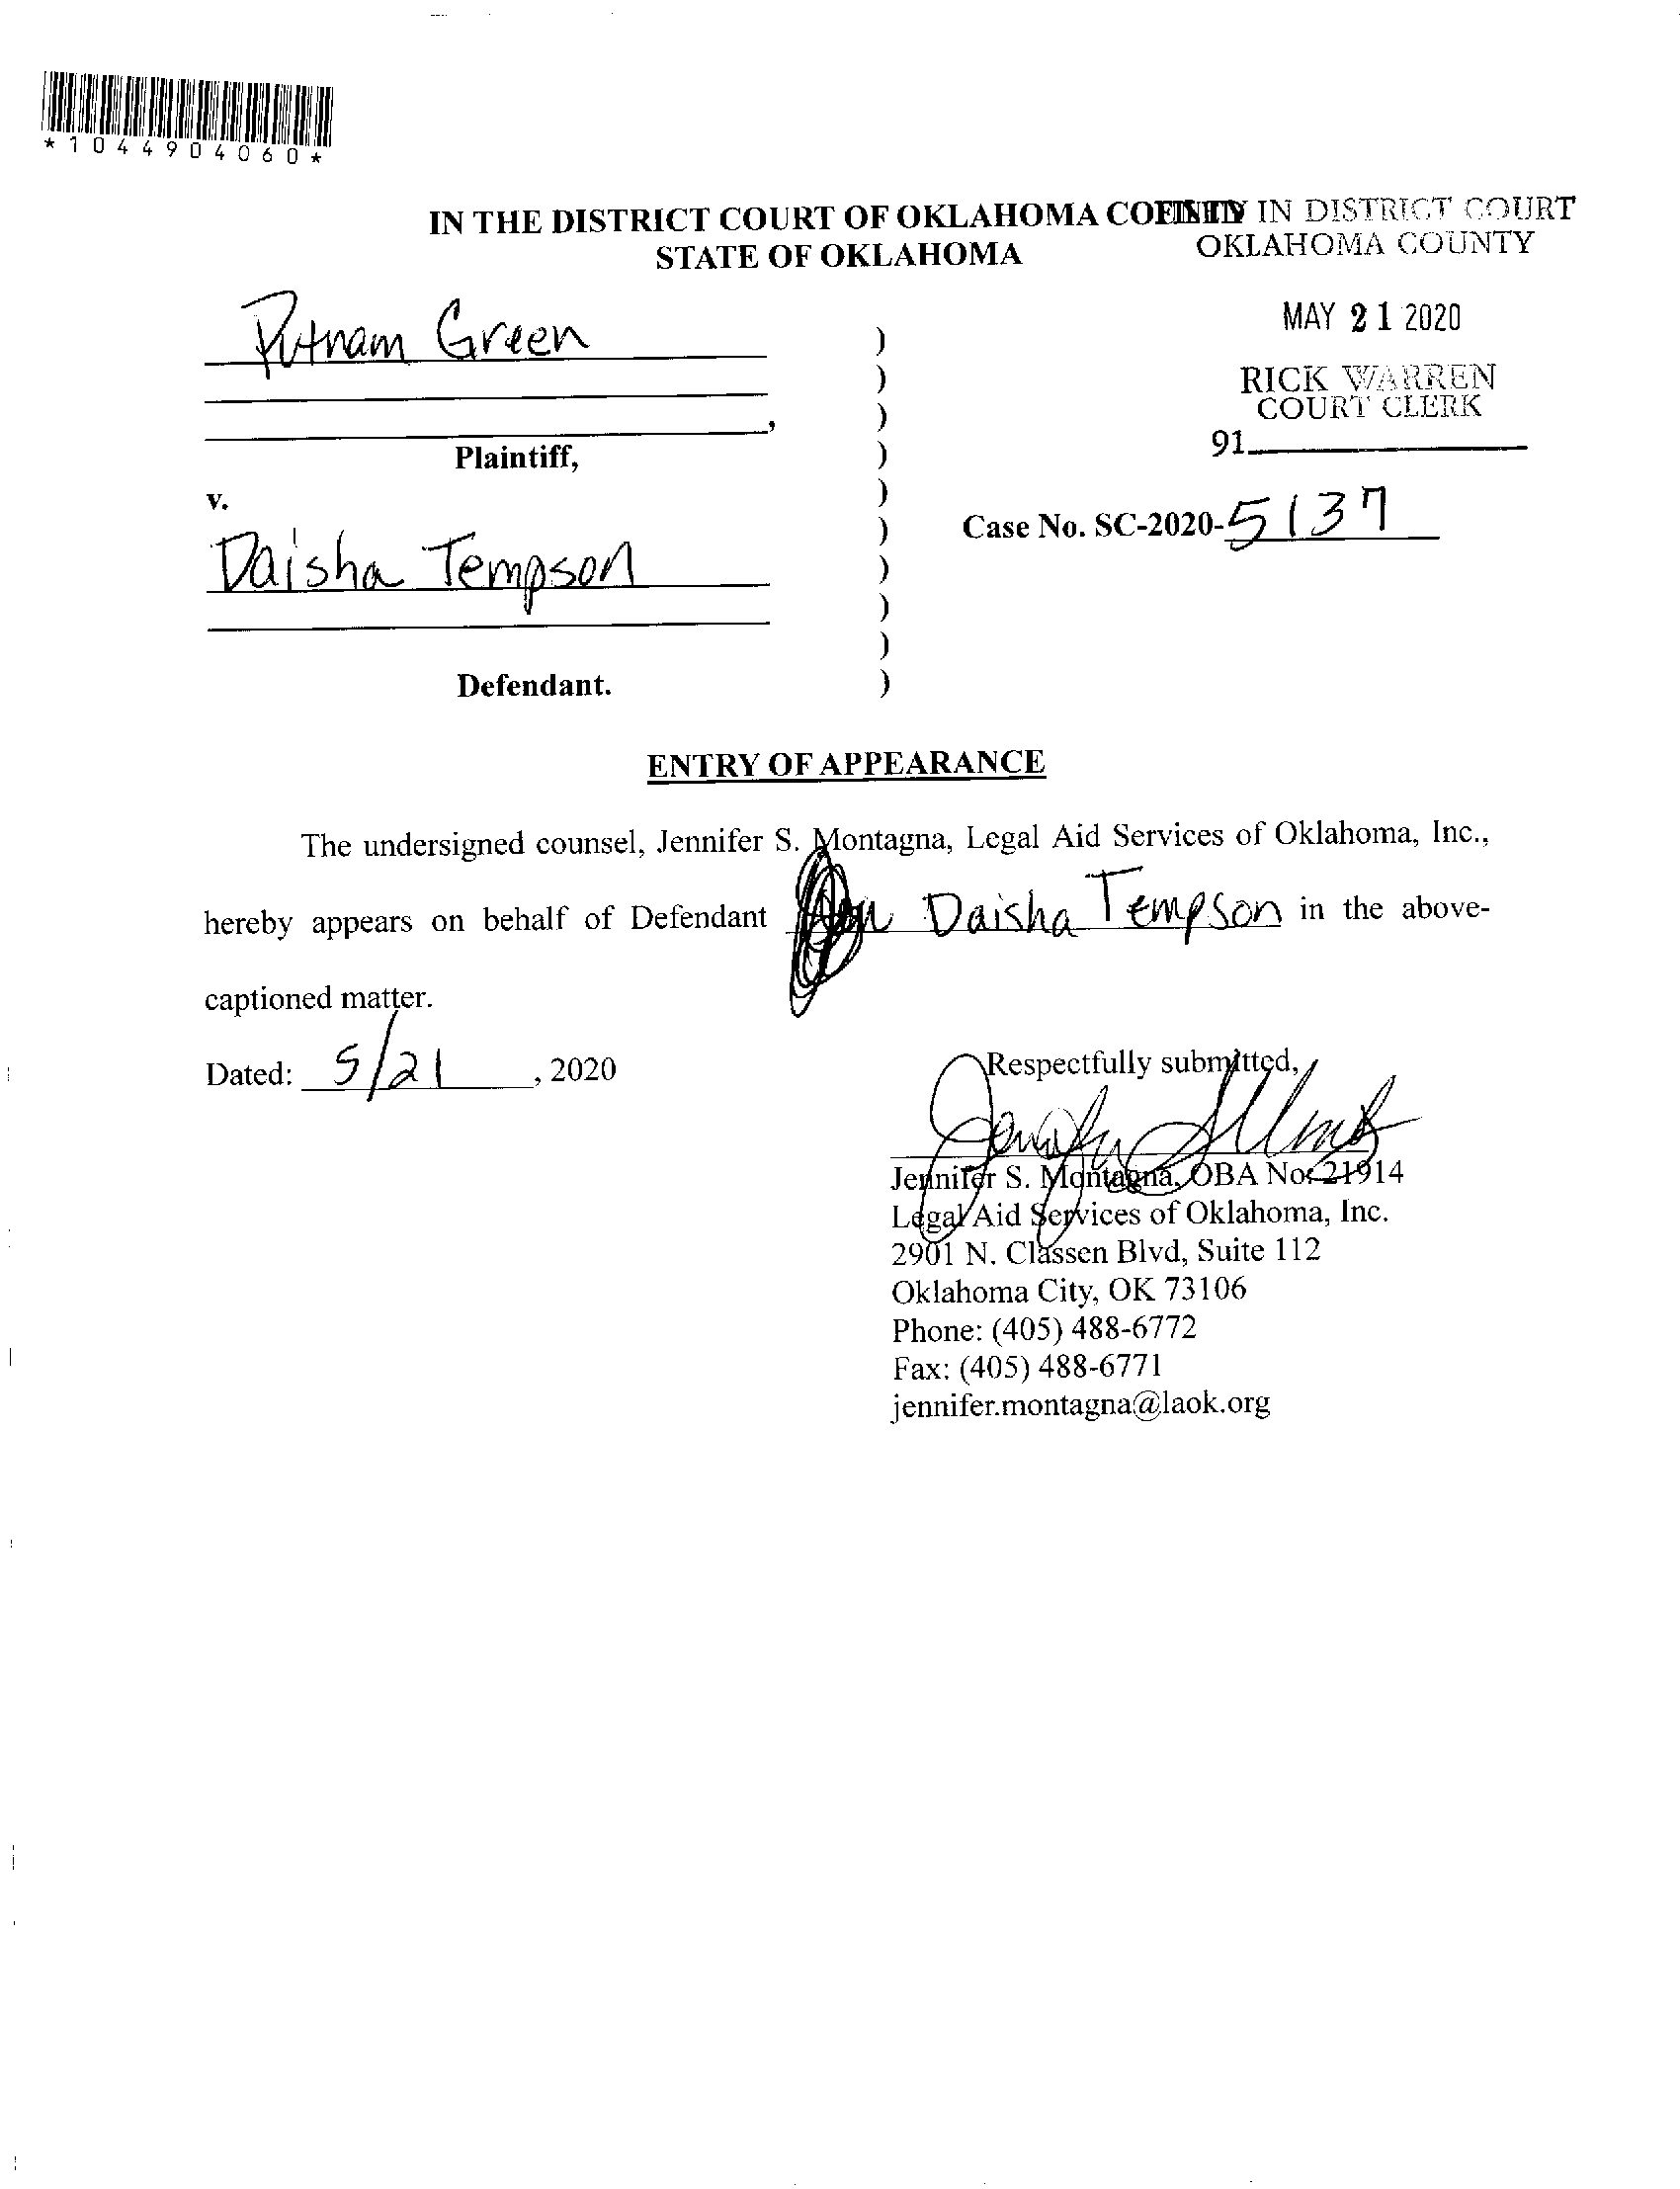 *1044904060*
IN THE DISTRICT COURT OF OKLAHOMA COUNTY
STATE OF OKLAHOMA
FILED IN DISTRICT COURT
OKLAHOMA COUNTY
MAY 21 2020
RICK WARREN
COURT CLERK
91
Putnam Green
)
)
, )
Plaintiff, )
v. )
) Case No. SC-2020-5137
Daisha Tempson )
)
)
Defendant. )
ENTRY OF APPEARANCE
The undersigned counsel, Jennifer S. Montagna, Legal Aid Services of Oklahoma, Inc.,
hereby appears on behalf of Defendant Daisha Tempson in the above-
captioned matter.
Dated: 5/21, 2020
Respectfully submitted,
Jennifer S. Montagna, OBA No. 21914
Legal Aid Services of Oklahoma, Inc.
2901 N. Classen Blvd, Suite 112
Oklahoma City, OK 73106
Phone: (405) 488-6772
Fax: (405) 488-6771
jennifer.montagna@laok.org